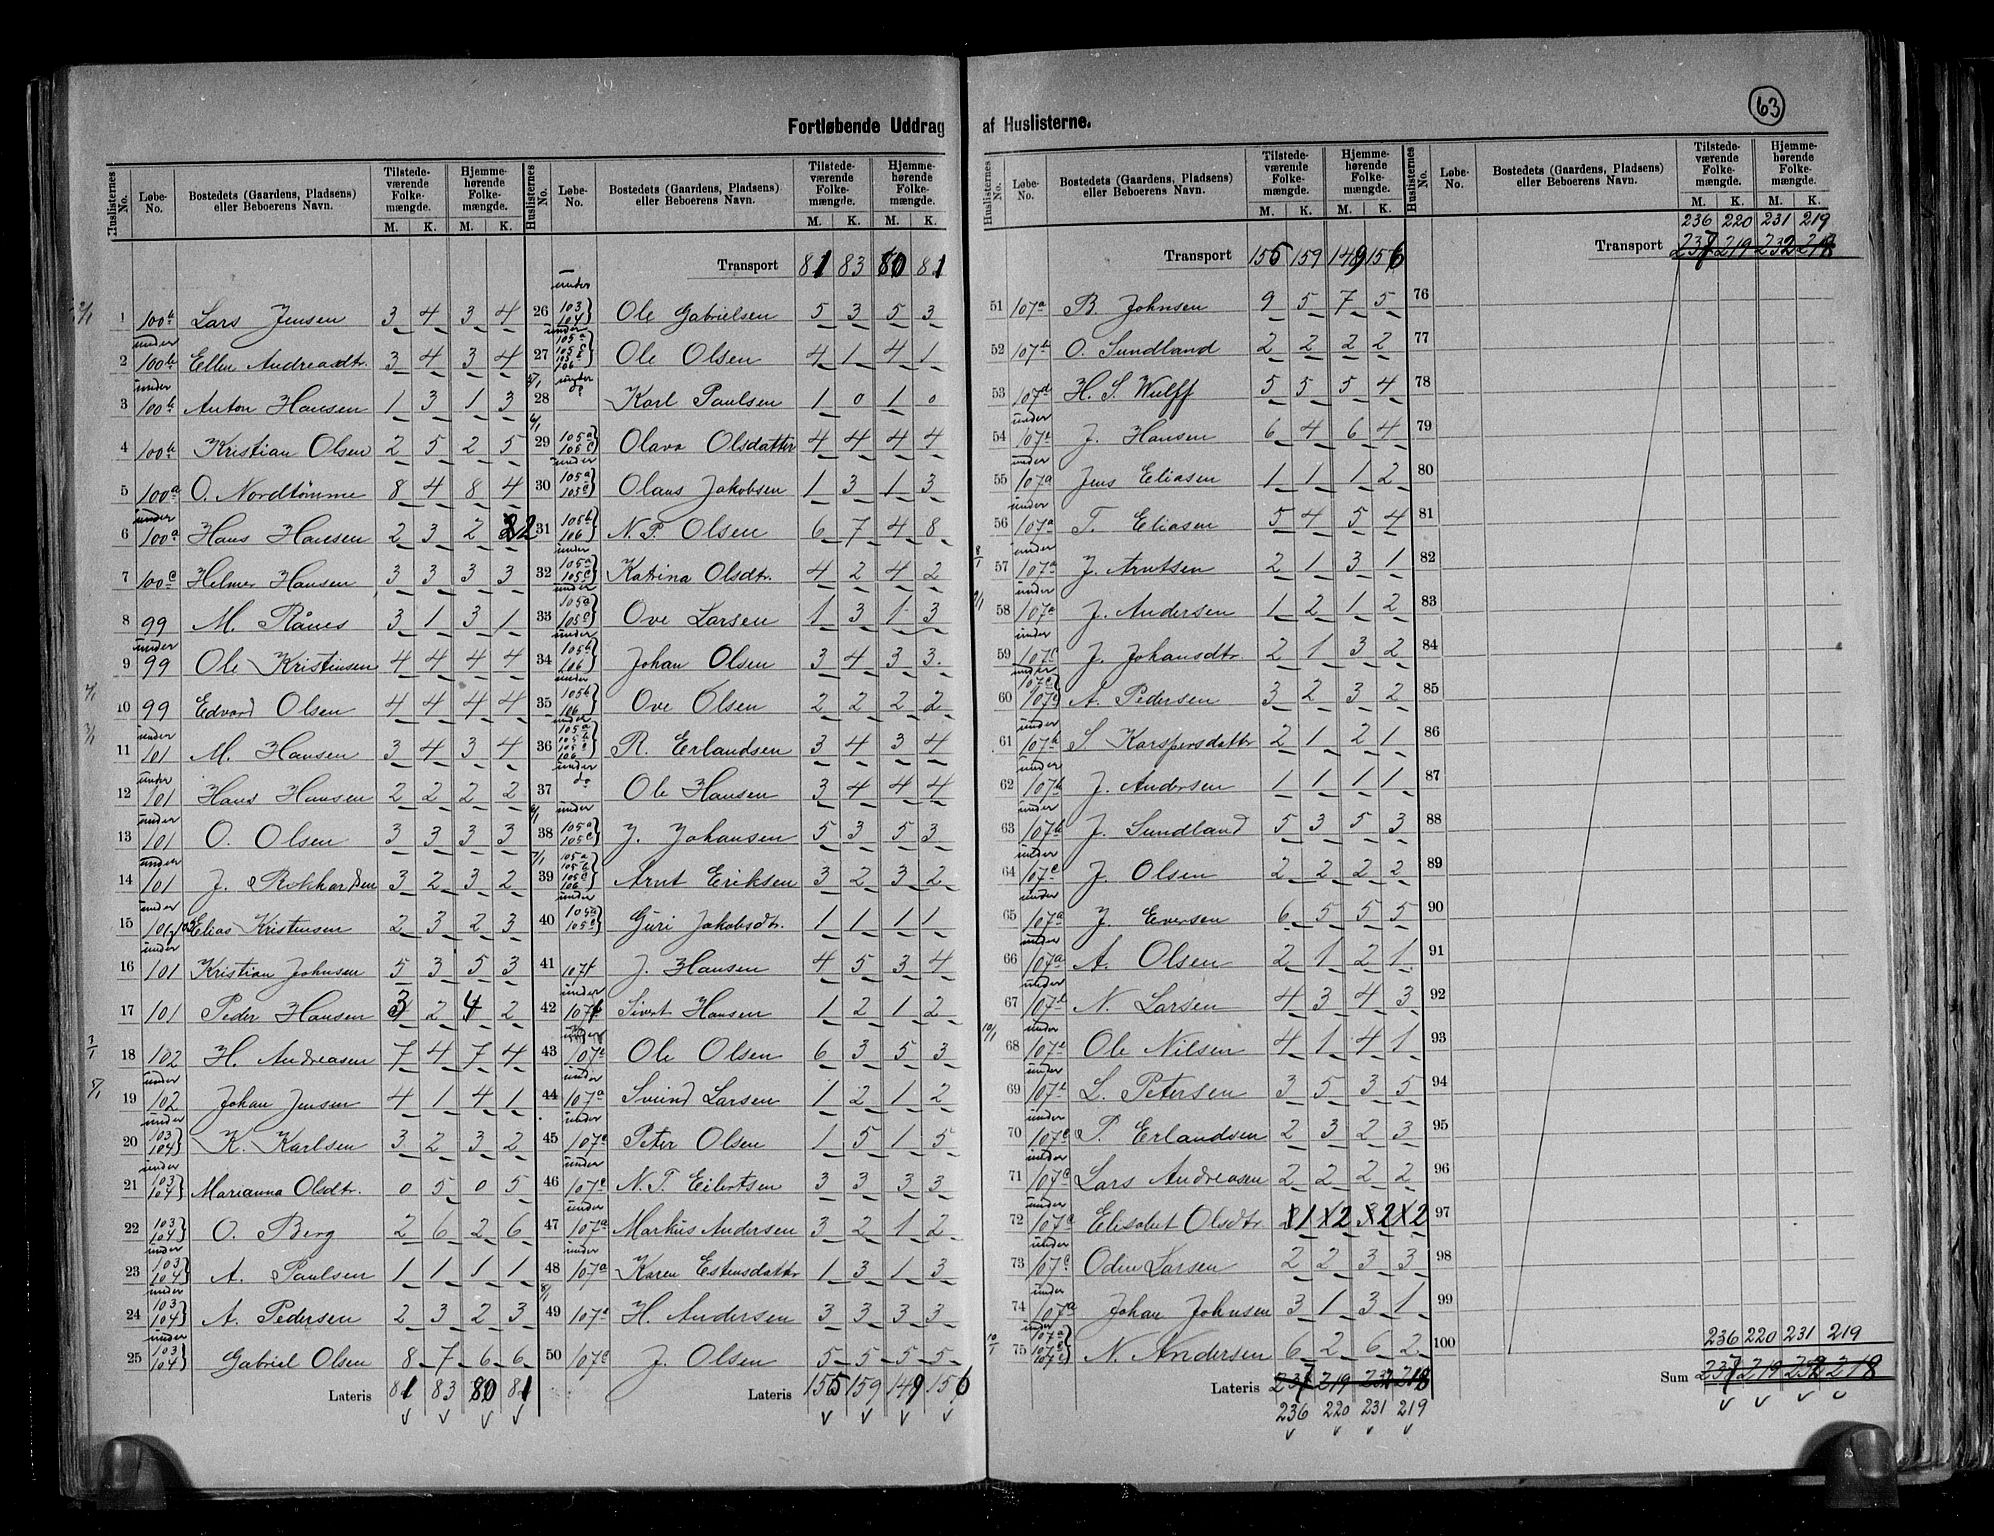 63
Fortløbende Uddrag af Huslisterne.
Huslisternes No. Løbe-No. Bostedets (Gaardens, Pladsens) eller Beboerens Navn. Tilstedeværende Folkemængde. M. K. Hjemmehørende Folkemængde. M. K.
1 100b Lars Jensen 3 4 3 4
2 under 100b Ellen Andreasdtr. 3 4 3 4
3 under 100b Anton Hansen 1 3 1 3
4 100b Kristian Olsen 2 5 2 5
5 100a O. Nordtømme 8 4 8 4
6 under 100a Hans Hansen 2 3 2 2
7 100c Helmer Hansen 3 3 3 3
8 99 M. Rånes 3 1 3 1
9 under 99 Ole Kristensen 4 4 4 4
10 99 Edvard Olsen 4 4 4 4
11 under 101 M. Hansen 3 4 3 4
12 under 101 Hans Hansen 2 2 2 2
13 under 101 O. Olsen 3 3 3 3
14 under 101 J. 3 2 3 2
15 under Elias Kristensen 2 3 2 3
16 under 101 Kristian Johnsen 5 3 5 3
17 101 Peder Hansen 3 2 4 2
18 102 H. Andreasen 7 4 7 4
19 under 102 Johan Jensen 4 1 4 1
20 under 103 104 K. Karlsen 3 2 3 2
21 under 103 104 Marianna Olsdtr. 0 5 0 5
22 103 104 O. Berg 2 6 2 6
23 under 103 104 A. Paulsen 1 1 1 1
24 103 104 A. Pedersen 2 3 2 3
25 under 103 104 Gabriel Olsen 8 7 6 6
Lateris 81 83 80 81
Huslisternes No. Løbe-No. Bostedets (Gaardens, Pladsens) eller Beboerens Navn. Tilstedeværende Folkemængde. M. K. Hjemmehørende Folkemængde. M. K.
Transport 81 83 80 81
26 under 103 104 Ole Gabrielsen 5 3 5 3
27 under 105a 105c 106 Ole Olsen 4 1 4 1
28 under do Karl Paulsen 1 0 1 0
29 105a 105c Olava Olsdatter 4 4 4 4
30 under 105a 105c Olaus Jakobsen 1 3 1 3
31 105b 106 N. P. Olsen 6 7 4 8
32 under 105a 105c Katrina Olsdtr. 4 2 4 2
33 under 105a 105c Ove Larsen 1 3 1 3
34 under 105b 106 Johan Olsen 3 4 3 3
35 under 105b 106 Ove Olsen 2 2 2 2
36 under 105a 105b 105c 106 R. Erlandsen 3 4 3 4
37 under do Ole Hansen 3 4 4 4
38 under 105a 105c J. Johansen 5 3 5 3
39 105a 105b 105c 106 Arnt Eriksen 3 2 3 2
40 under 105a 105c Guri Jakobsdtr. 1 1 1 1
41 107f J. Hansen 4 5 3 4
42 under 107f Sivert Hansen 1 2 1 2
43 under 107e Ole Olsen 6 3 5 3
44 under 107a Svend Larsen 1 2 1 2
45 under 107e Peter Olsen 1 5 1 5
46 under 107e N. T. Eilertsen 3 3 3 3
47 under 107a Markus Andersen 3 2 1 2
48 under 107a Karen Estensdattr 1 3 1 3
49 107a H. Andersen 3 3 3 3
50 107c J. Olsen 5 5 5 5
Lateris 155 159 149 156
Huslisternes No. Løbe-No. Bostedets (Gaardens, Pladsens) eller Beboerens Navn. Tilstedeværende Folkemængde. M. K. Hjemmehørende Folkemængde. M. K.
Transport 155 159 149 156
51 107a B. Johnsen 9 5 7 5
52 107b O. Sundland 2 2 2 2
53 107d H. S. Wulff 5 5 5 4
54 under 107a J. Hansen 6 4 6 4
55 under 107a Jens Eliasen 1 1 1 2
56 107a T. Eliasen 5 4 5 4
57 under 107a J. Arntsen 2 1 3 1
58 under 107a J. Andersen 1 2 1 2
59 under 107c J. Johansdtr. 2 1 3 2
60 under 107c A. Pedersen 3 2 3 2
61 under 107b S. Kaspersdattr 2 1 2 1
62 under 107b J. Andersen 1 1 1 1
63 under 107b J. Sundland 5 3 5 3
64 under 107c J. Olsen 2 2 2 2
65 under 107a J. Eversen 6 5 5 5
66 under 107a A. Olsen 2 1 2 1
67 under N. Larsen 4 3 4 3
68 under 107e Ole Nilsen 4 1 4 1
69 under L. Petersen 3 5 3 5
70 under 107c P. Erlandsen 2 3 2 3
71 under 107c Lars Andreasen 2 2 2 2
72 under 107a Elisabet Olsdtr. 1 2 2 2
73 under 107c Odin Larsen 2 2 3 3
74 under 107a Johan Johnsen 3 1 3 1
75 under 107a N. Andersen 6 2 6 2
Lateris 237 219 232 218
236 220 231 219
Huslisternes No. Løbe-No. Bostedets (Gaardens, Pladsens) eller Beboerens Navn. Tilstedeværende Folkemængde. M. K. Hjemmehørende Folkemængde. M. K.
236 220 231 219
Transport 237 219 232 218
76
77
78
79
80
81
82
83
84
85
86
87
88
89
90
91
92
93
94
95
96
97
98
99
100
236 220 231 219
Sum 237 219 232 218